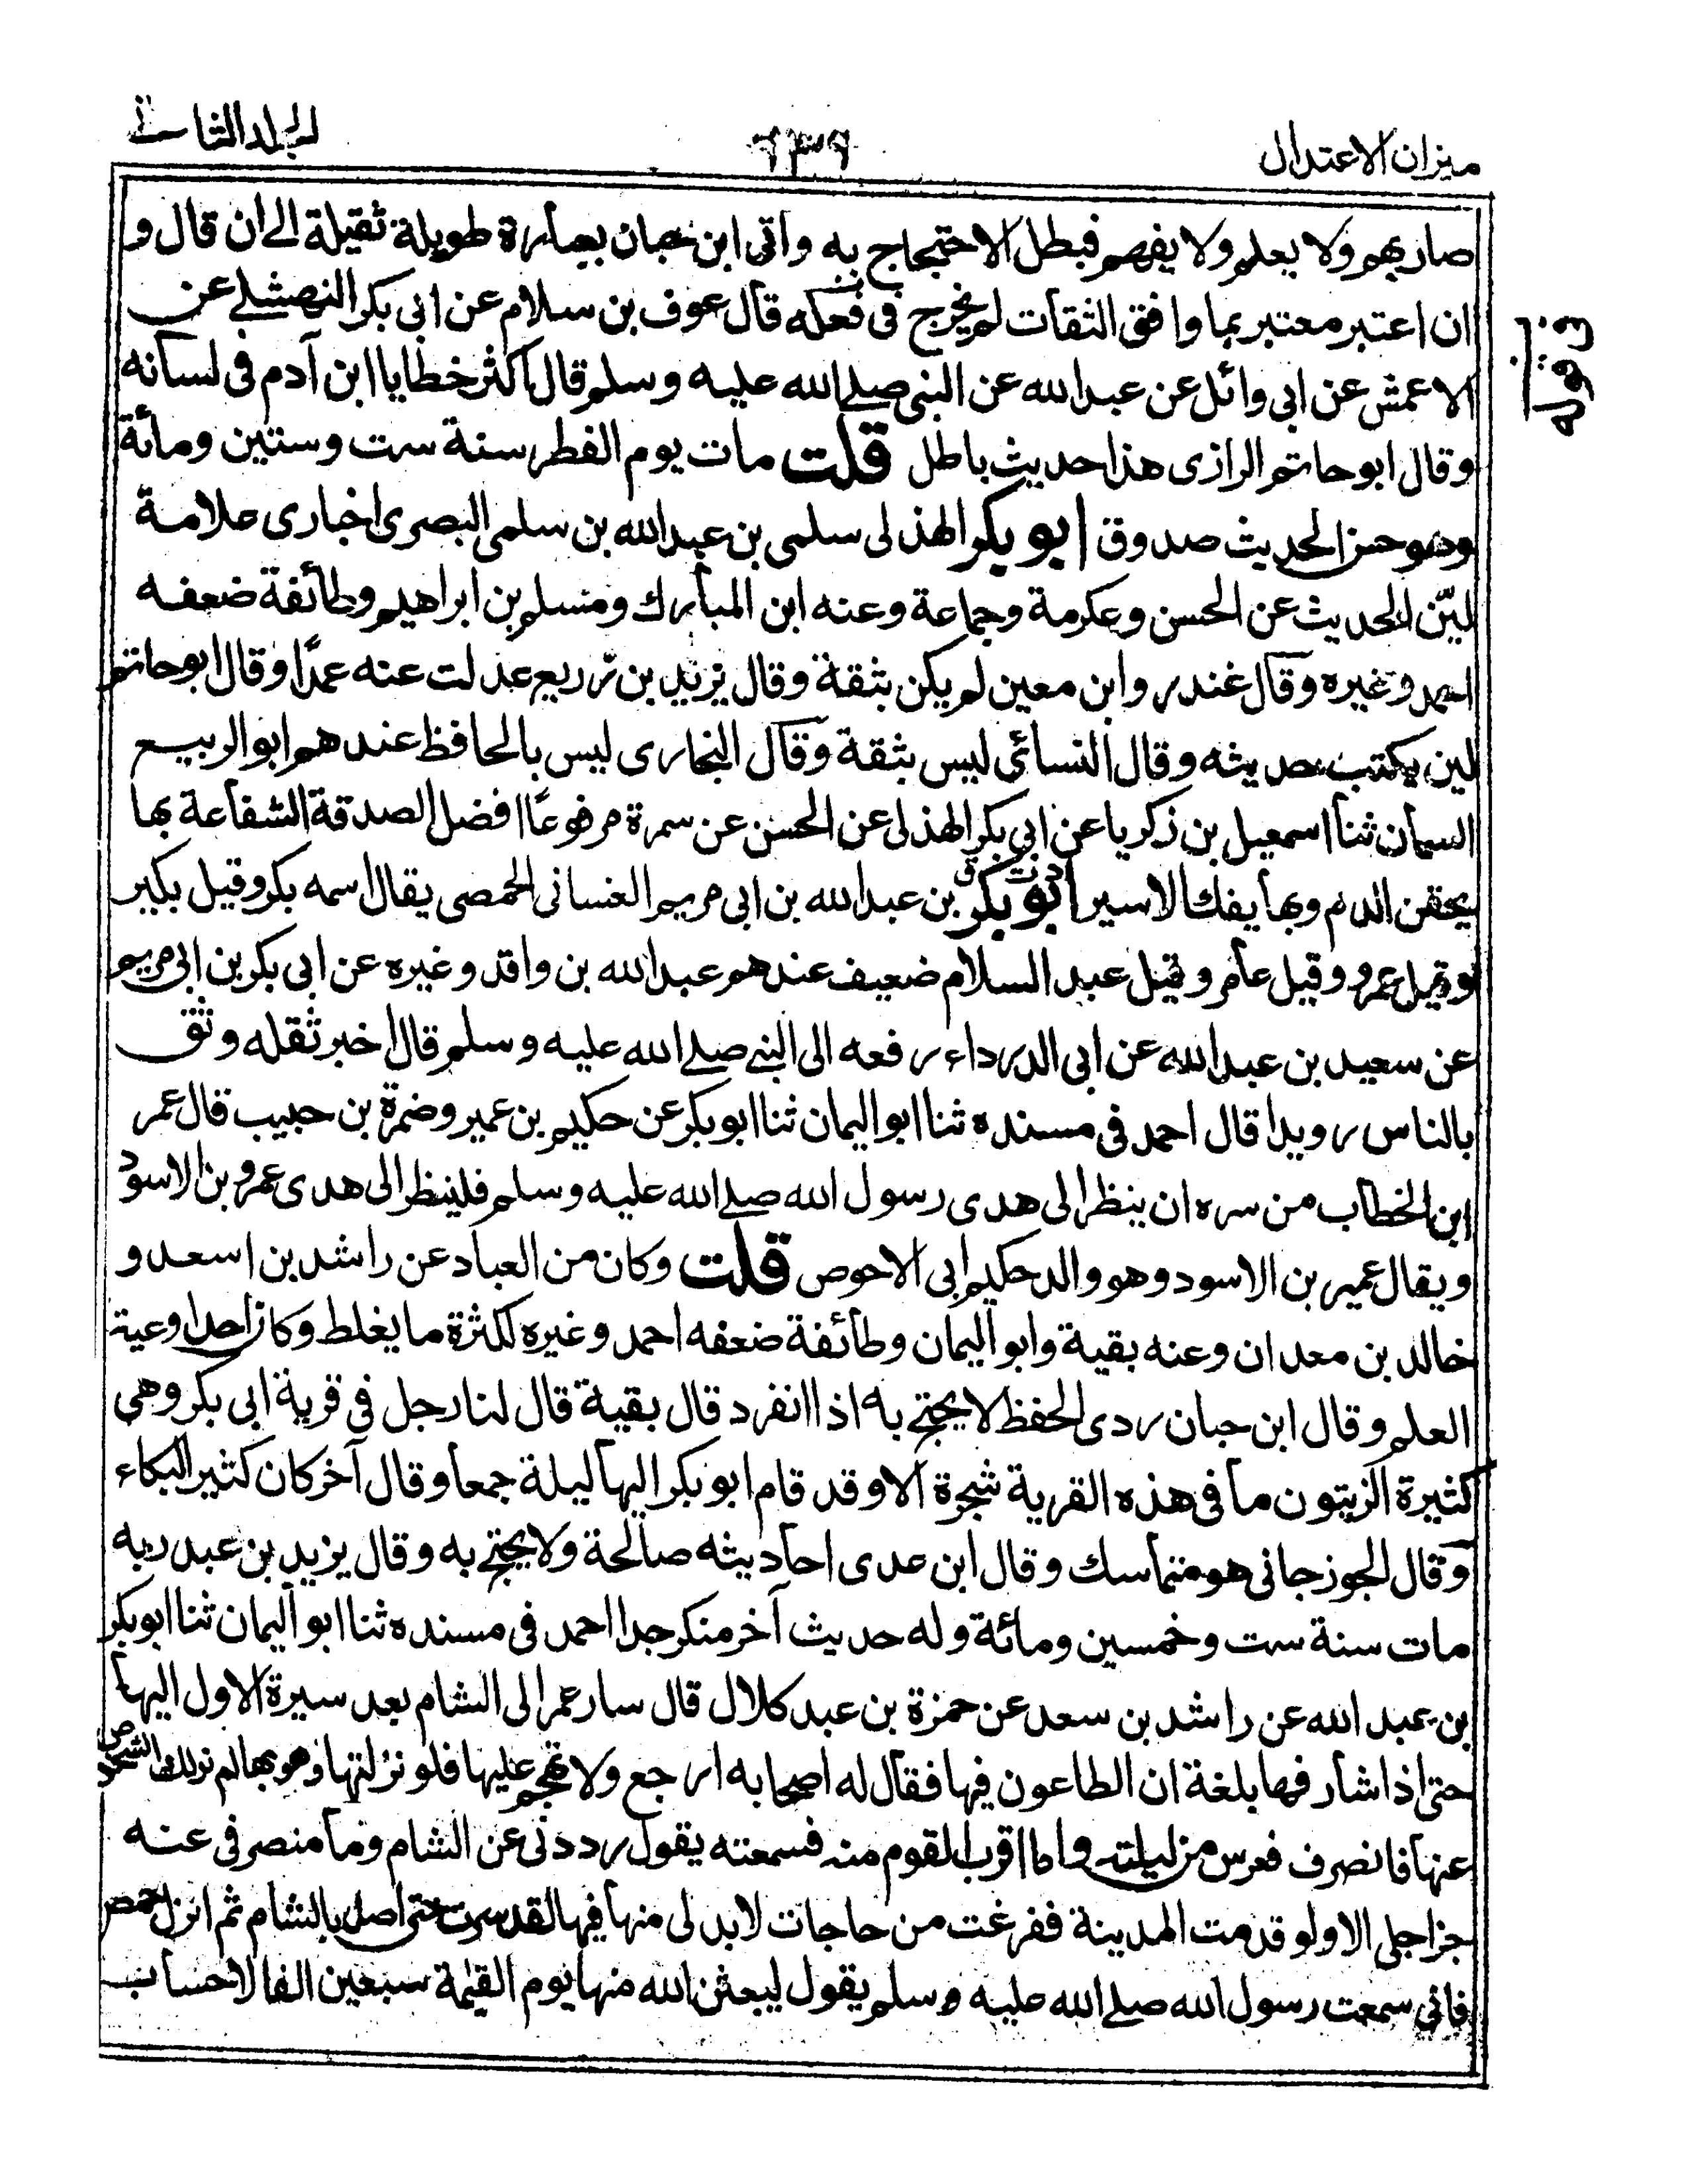 ميزان الاعتدال
٦٣٩
الجلد الثانى
صاريهم ولا يعلم ولا يفهم فبطل الاحتجاج به واتى ابن حبان بعبارة طويلة ثقيلة الى ان قال و
ان اعتبر معتبر بما وافق الثقات لم يخرج فى فعله قال عوف بن سلام عن ابى بكر النهشلى عن
الاعمش عن ابى وائل عن عبد الله عن النبى صلى الله عليه وسلم قال اكثر خطايا ابن آدم فى لسانه
وقال ابو حاتم الرازى هذا حديث باطل قلت مات يوم الفطر سنة ست وستين ومائة
وهو حسن الحديث صدوق ابو بكر الهذلى سلمى بن عبد الله بن سلمى البصرى اخبارى علامة
ليّن الحديث عن الحسن وعكرمة وجماعة وعنه ابن المبارك ومسلم بن ابراهيم وطائفة ضعفه
احمد وغيره وقال غندر وابن معين لم يكن بثقة وقال يزيد بن زريع عدلت عنه عمدًا وقال ابو حاتم
لين يكتب حديثه وقال النسائى ليس بثقة وقال البخارى ليس بالحافظ عندهم ابو الربيع
السمان ثنا اسمعيل بن زكريا عن ابى بكر الهذلى عن الحسن عن سمرة مرفوعًا افضل الصدقة الشفاعة بها
يحقن الدم وبها يفك الاسير ابو بكر بن عبد الله بن ابى مريم الغسانى الحمصى يقال اسمه بكر وقيل بكير
وقيل عمرو وقيل عامر وقيل عبد السلام ضعيف عندهم عبد الله بن واقد وغيره عن ابى بكر بن ابى مريم
عن سعيد بن عبد الله عن ابى الدرداء رفعه الى النبى صلى الله عليه وسلم قال اخبر تقله وثق
بالناس رويدا قال احمد فى مسنده ثنا ابو اليمان ثنا ابو بكر عن حكيم بن عمير وضمرة بن حبيب قال عمر
ابن الخطاب من سره ان ينظر الى هدى رسول الله صلى الله عليه وسلم فلينظر الى هدى عمرو بن الاسود
ويقال عمير بن الاسود وهو والد حكيم ابى الاحوص قلت وكان من العباد عن راشد بن اسعد و
خالد بن معدان وعنه بقية وابو اليمان وطائفة ضعفه احمد وغيره لكثرة ما يغلط وكان احد اوعية
العلم وقال ابن حبان ردى الحفظ لا يحتج به اذا انفرد قال بقية قال لنا رجل فى قرية ابى بكر وهى
كثيرة الزيتون ما فى هذه القرية شجرة الا وقد قام ابو بكر اليها ليلة جمعا وقال آخر كان كثير البكاء
وقال الجوزجانى هو متماسك وقال ابن عدى احاديثه صالحة ولا يحتج به وقال يزيد بن عبد ربه
مات سنة ست وخمسين ومائة وله حديث آخر منكر جدا احمد فى مسنده ثنا ابو اليمان ثنا ابو بكر
بن عبد الله عن راشد بن سعد عن حمزة بن عبد كلال قال سار عمر الى الشام بعد سيرة الاول اليها
حتى اذا شارفها بلغة ان الطاعون فيها فقال له اصحابه ارجع ولا تهجم عليها فلو نزلتها وهو بها لم نر لك الشخوص
عنها فانصرف فعرس من ليلته وانا اقرب القوم منه فسمعته يقول ردونى عن الشام وما منصرفى عنه
اجلى الا ولو قدمت المدينة ففرغت من حاجات لابد لى منها فيها لقد سرت حتى اصل بالشام ثم انزل حمص
فانى سمعت رسول الله صلى الله عليه وسلم يقول ليبعثن الله منها يوم القيمة سبعين الفا لا حساب